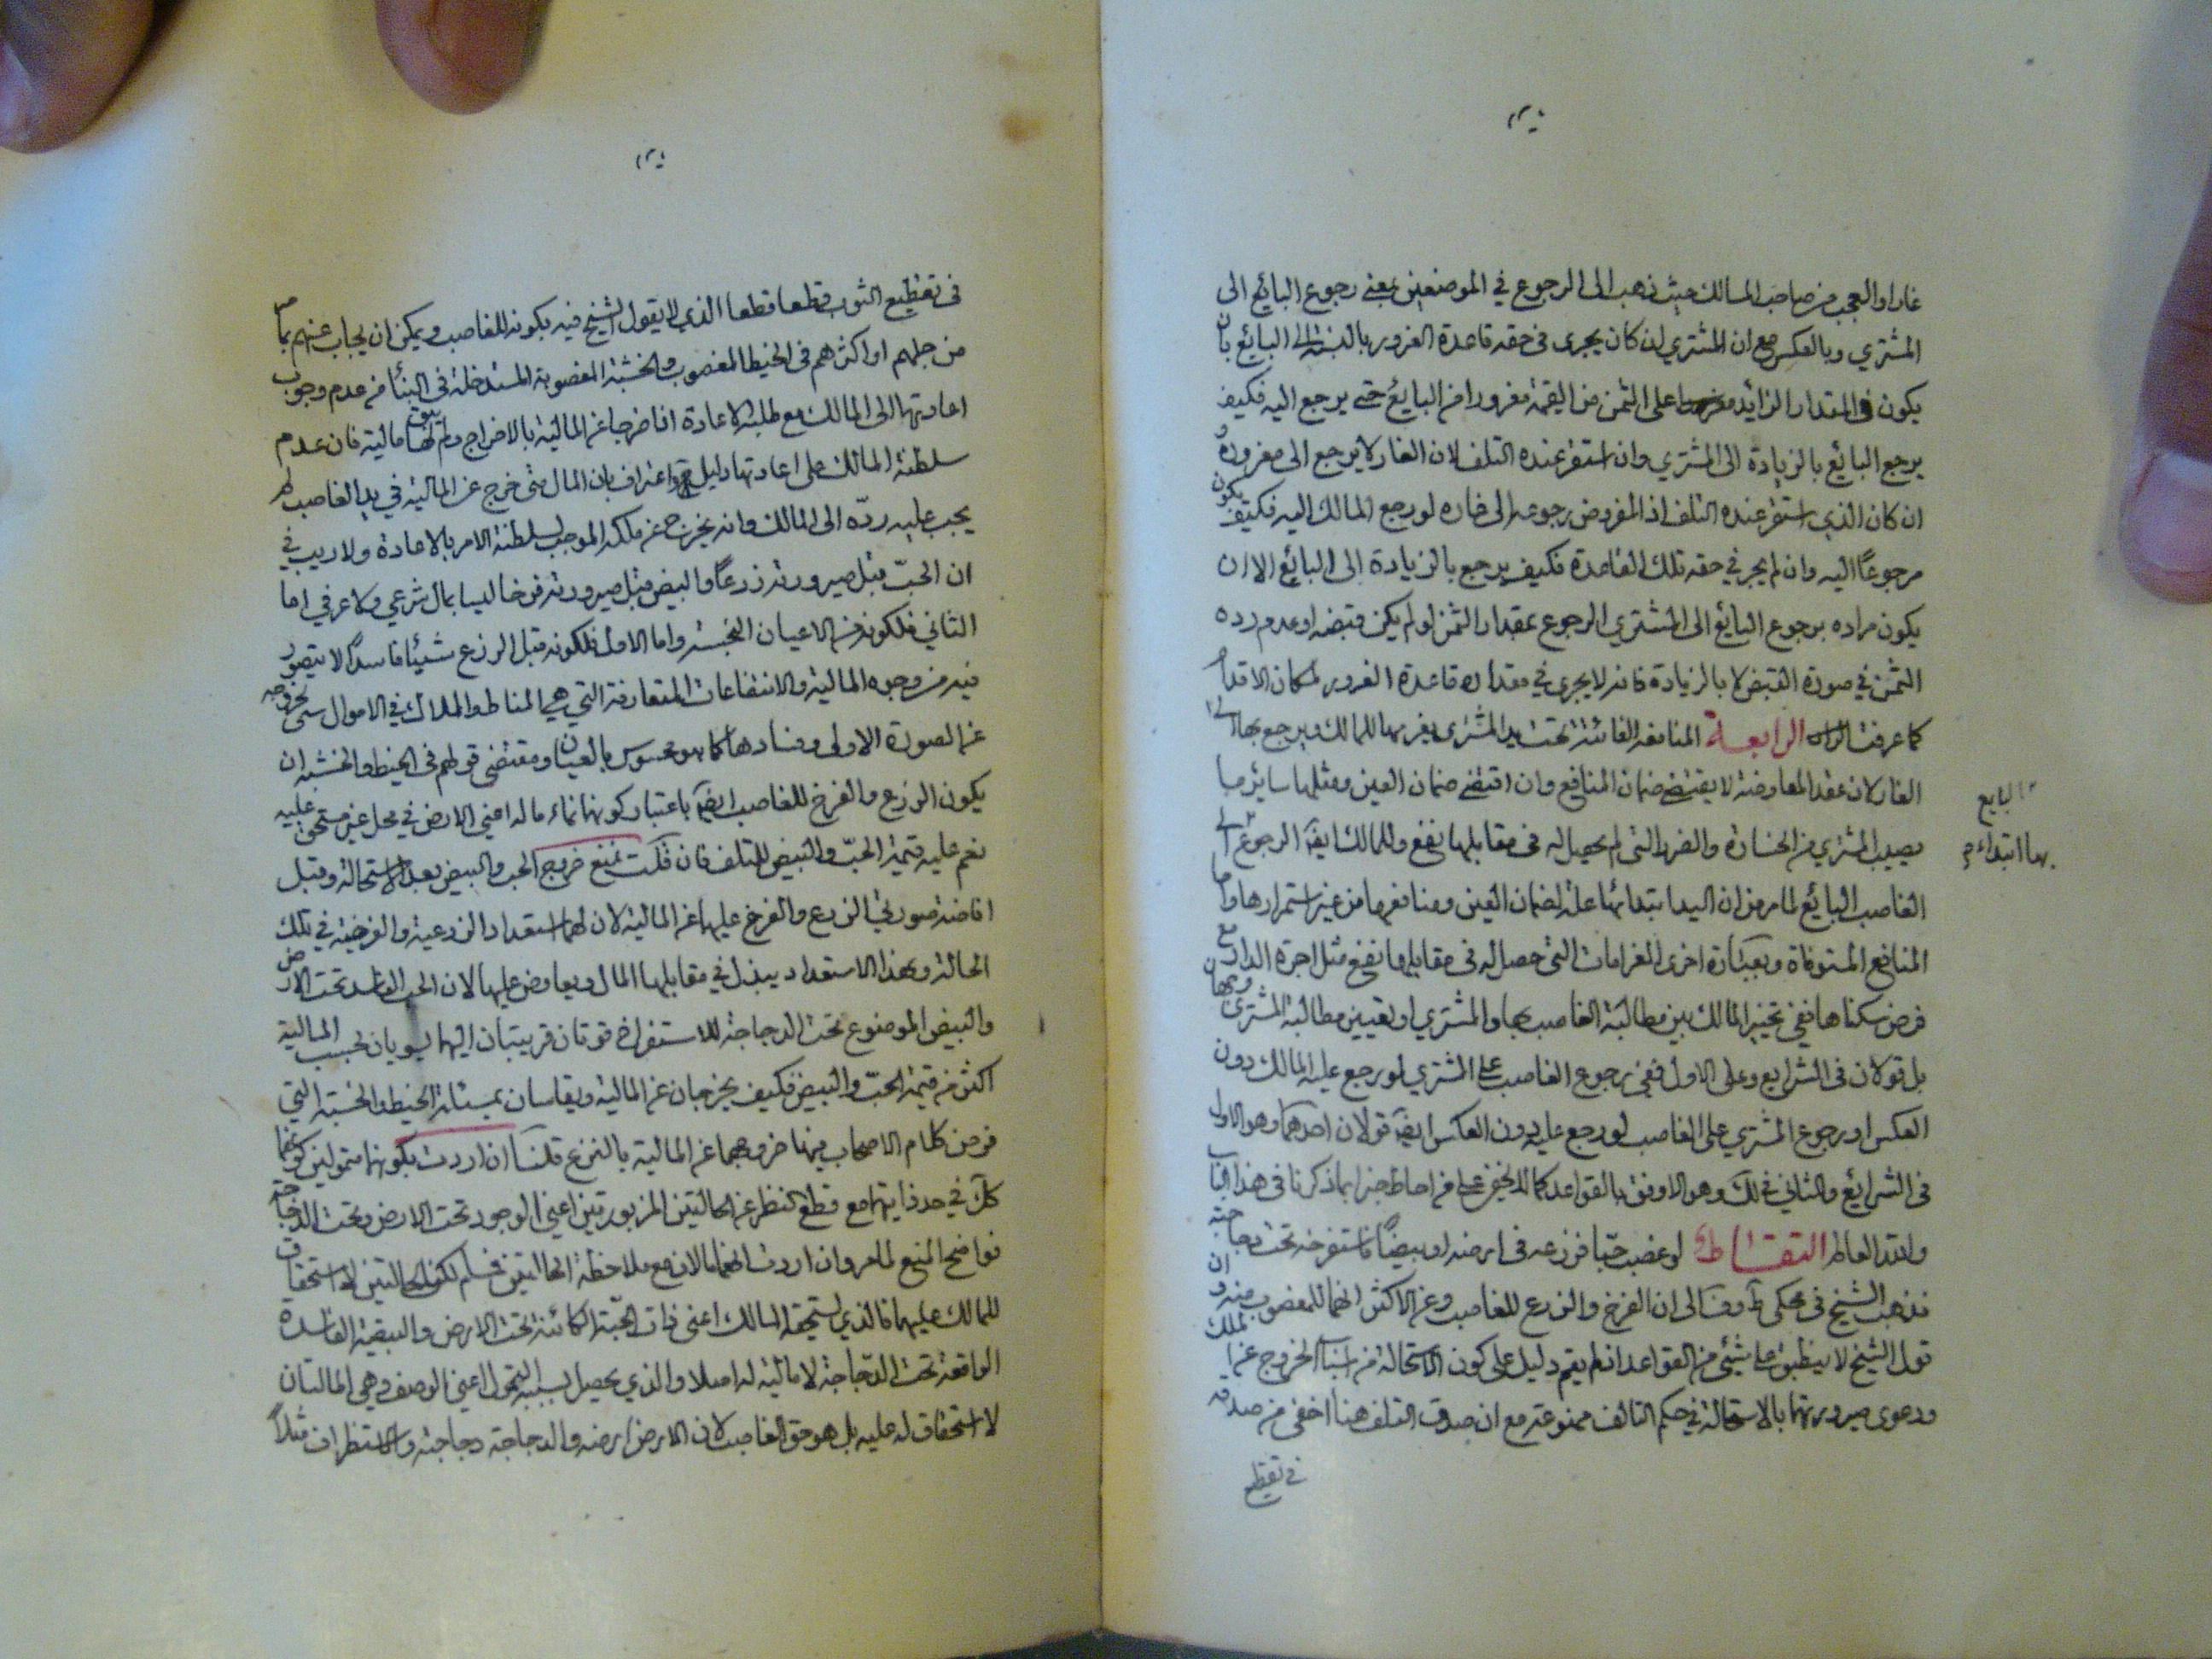 غارا والعجب من صاحب المسالك حيث ذهب الى الرجوع في الموضعين يعني رجوع البائع الى
المشتري وبالعكس مع ان المشتري ان كان يجري في حقه قاعدة الغرور بالنسبة الى البائع بان
يكون في المقدار الزايد على الثمن من القيمة مغرورا من البايع حتى يرجع اليه فكيف
يرجع البائع بالزيادة الى المشتري وان استقر عنده التلف لان الغار لا يرجع الى مغروره و
ان كان الذي استقر عنده التلف اذ المفروض رجوعه الى غاره لو رجع المالك اليه فكيف يكون
مرجوعًا اليه وان لم يجر في حقه تلك القاعدة فكيف يرجع بالزيادة الى البائع الا ان
يكون مراده برجوع البايع الى المشتري الرجوع بمقدار الثمن لو لم يكن قبضه او عدم رده
الثمن في صورة القبض لا بالزيادة فانه لا يجري في مقداره قاعدة الغرور لمكان الاقدام
كما عرفت الرابعة المنافع الفائتة تحت يد المشتري يغرمها للمالك ويرجع بها الى
الغار لان عقد المعاوضة لا يقتضي ضمان المنافع وان اقتضى ضمان العين ومثلها ساير ما
يصيب المشتري من الخسارة والضرر التي لم يحصل له في مقابلها نفع وللمالك ايضا الرجوع الى
البايع
بها ابتداء
الغاصب البائع لما مر من ان اليد ابتدائها علة لضمان العين ومنافعها من غير استمرارها واما
المنافع المستوفاة وبعبارة اخرى الغرامات التي حصل له في مقابلها نفع مثل اجرة الدار مع
فرض سكناها ففي تخيير المالك بين مطالبة الغاصب بها والمشتري او تعيين مطالبة المشتري بها وجهان
بل قولان في الشرايع وعلى الاول ففي رجوع الغاصب على المشتري لو رجع عليه المالك دون
العكس او رجوع المشتري على الغاصب لو رجع عليه دون العكس ايضا قولان احدهما وهو الاول
في الشرائع والثاني في لك وهو الاوفق بالقواعد كما لا يخفى على من احاط خبرا بما ذكرنا في هذا الباب
والله العالم التقاط لو غصب حبا فزرعه في ارضه او بيضًا فاستفرخه تحت دجاجته
فذهب الشيخ في محكي ط وف الى ان الفرخ والزرع للغاصب وعن الاكثر انهما للمغصوب منه و ان
قول الشيخ لا ينطبق على شيئ من القواعد اذ لم يقم دليل على كون الاستحالة من اسباب الخروج عن الملك
ودعوى صيرورتهما بالاستحالة في حكم التالف ممنوعة مع ان صدق التلف هنا اخفى من صدقه
في تقطيع
في تقطيع الثوب قطعا قطعا الذي لا يقول الشيخ فيه بكونه للغاصب ويمكن ان يجاب عنهم بما مر
من جلهم او اكثرهم في الخيط المغصوب والخشبة المغصوبة المستدخلة في البناء من عدم وجوب
اعادتها الى المالك مع طلبه الاعادة اذا خرجا عن المالية بالاخراج ولم يبق لهما مالية فان عدم
سلطنة المالك على اعادتها دليل واعتراف بان المال متى خرج عن المالية في يد الغاصب لم
يجب عليه ردّه الى المالك وانه يخرج عن ملكه الموجب لسلطنة الامر بالاعادة ولا ريب في
ان الحبّ قبل صيرورته زرعًا والبيض قبل صيرورته فرخا ليسا بمال شرعي ولا عرفي اما
الثاني فلكونه من الاعيان النجسة واما الاول فلكونه قبل الزرع شيئا فاسدًا لا يتصور
فيه من وجوه المالية والانتفاعات المتعارفة التي هي المناط والملاك في الاموال شي لخروجه
عن الصورة الاولى وفسادها كما هو محسوس بالعيان ومقتضى قولهم في الخيط والخشبة ان
يكون الزرع والفرخ للغاصب ايضا باعتبار كونهما نماء ماله اعني الارض في محل غير مستحق عليه
نعم عليه قيمة الحبّ والبيض للتلف فان قلت نمنع خروج الحب والبيض بعد الاستحالة وقبل
افاضة صورتي الزرع والفرخ عليهما عن المالية لان لهما استعداد الزرعية والفرخية في تلك
الحالة وبهذا الاستعداد يبذل في مقابلها المال ويعاوض عليها لان الحب الفاسد تحت الارض
والبيض الموضوع تحت الدجاجة للاستفراخ قوتان قريبتان اليهما يسويان بحسب المالية
اكثر من قيمة الحبّ والبيض فكيف يخرجان عن المالية ويقاسان بمسئلة الخيط والخشبة التي
فرض كلام الاصحاب فيهما خروجهما عن المالية بالنزع قلت ان اردت بكونهما متمولين كونهما
كلّ في حد ذاتيهما مع قطع النظر عن الحالتين المزبورتين اعني الوجود تحت الارض وتحت الدجاجة
فواضح المنع لما مر وان اردت انهما مالان مع ملاحظة الحالتين فمسلم لكن الحالتين لا استحقاق
للمالك عليهما فالذي يستحقه المالك اعني ذات الحبّة الكائنة تحت الارض والبيضة الفاسدة
الواقعة تحت الدجّاجة لا مالية له اصلا والذي يحصل بسببه التمول اعني الوصف وهي الماليتان
لا استحقاق له عليه بل هو حق الغاصب لان الارض ارضه والدجاجة دجاجته